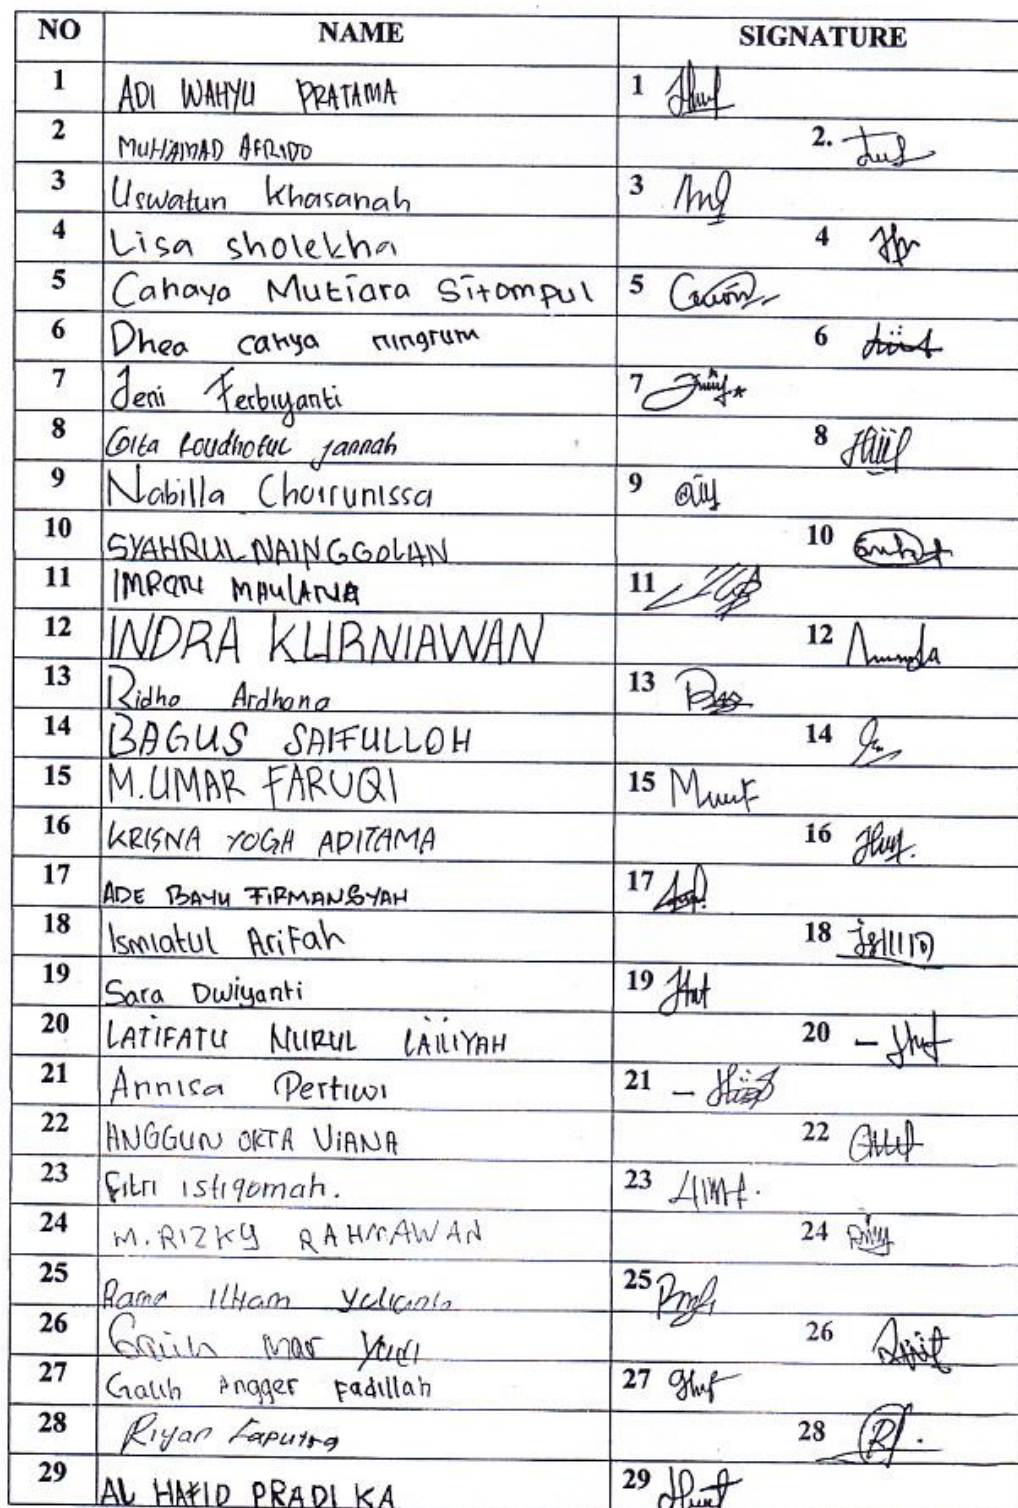 NO NAME SIGNATURE
1 ADI WAHYU PRATAMA 1
2 MUHAMAD AFRIDO 2.
3 Uswatun Khasanah 3
4 Lisa sholekha 4
5 Cahaya Mutiara Sitompul 5
6 Dhea cahya ningrum 6
7 Jeni Ferbiyanti 7
8 Gita Roudhotul Jannah 8
9 Nabilla Choirunissa 9
10 SYAHRUL NAINGGOLAN 10
11 IMRON MAULANA 11
12 INDRA KURNIAWAN 12
13 Ridho Ardhana 13
14 BAGUS SAIFULLOH 14
15 M.UMAR FARUQI 15
16 KRISNA YOGA ADITAMA 16
17 ADE BAYU FIRMANSYAH 17
18 Ismiatul Arifah 18
19 Sara Dwiyanti 19
20 LATIFATU NURUL LAILIYAH 20
21 Annisa Pertiwi 21
22 ANGGUN OKTA VIANA 22
23 Fitri istiqomah. 23
24 M.RIZKY RAHMAWAN 24
25 Rama Ilham 25
26 Mar Yudi 26
27 Galih Angger Fadillah 27
28 Riyan Saputra 28
29 AL HAFID PRADIKA 29